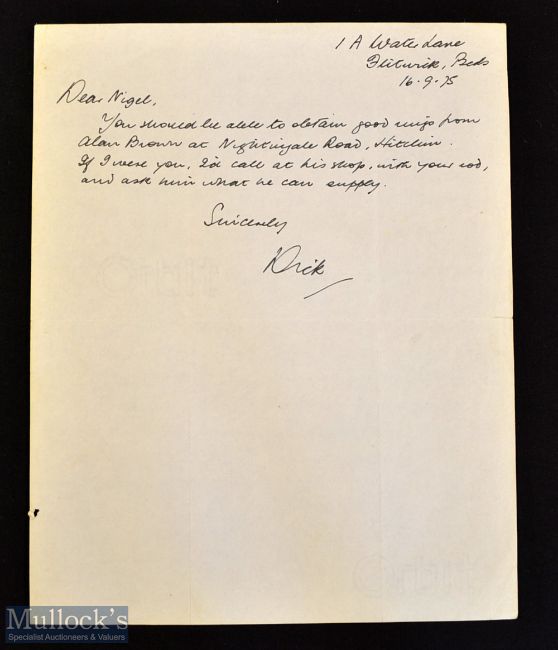 1 A Water Lane
Flitwick, Beds
16.9.75
Dear Nigel,
You should be able to obtain good rings from
Alan Brown at Nightingale Road, Hitchin.
If I were you, I'd call at his shop, with your rod,
and ask him what he can supply.
Sincerely
Dick
Mullock's
Specialist Auctioneers & Valuers